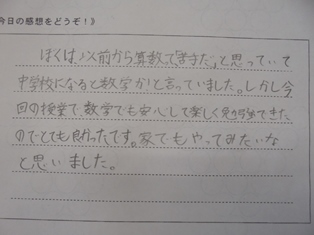 今日の感想をどうぞ！》
ぼくは、以前から算数って「まきた。」と思っていて
中学校になると数学か!と言っていました。しかし今
回の授業で、数学でも安心して楽しく勉強できた
のでとても良かったです。家でもやってみたいな
と思いました。